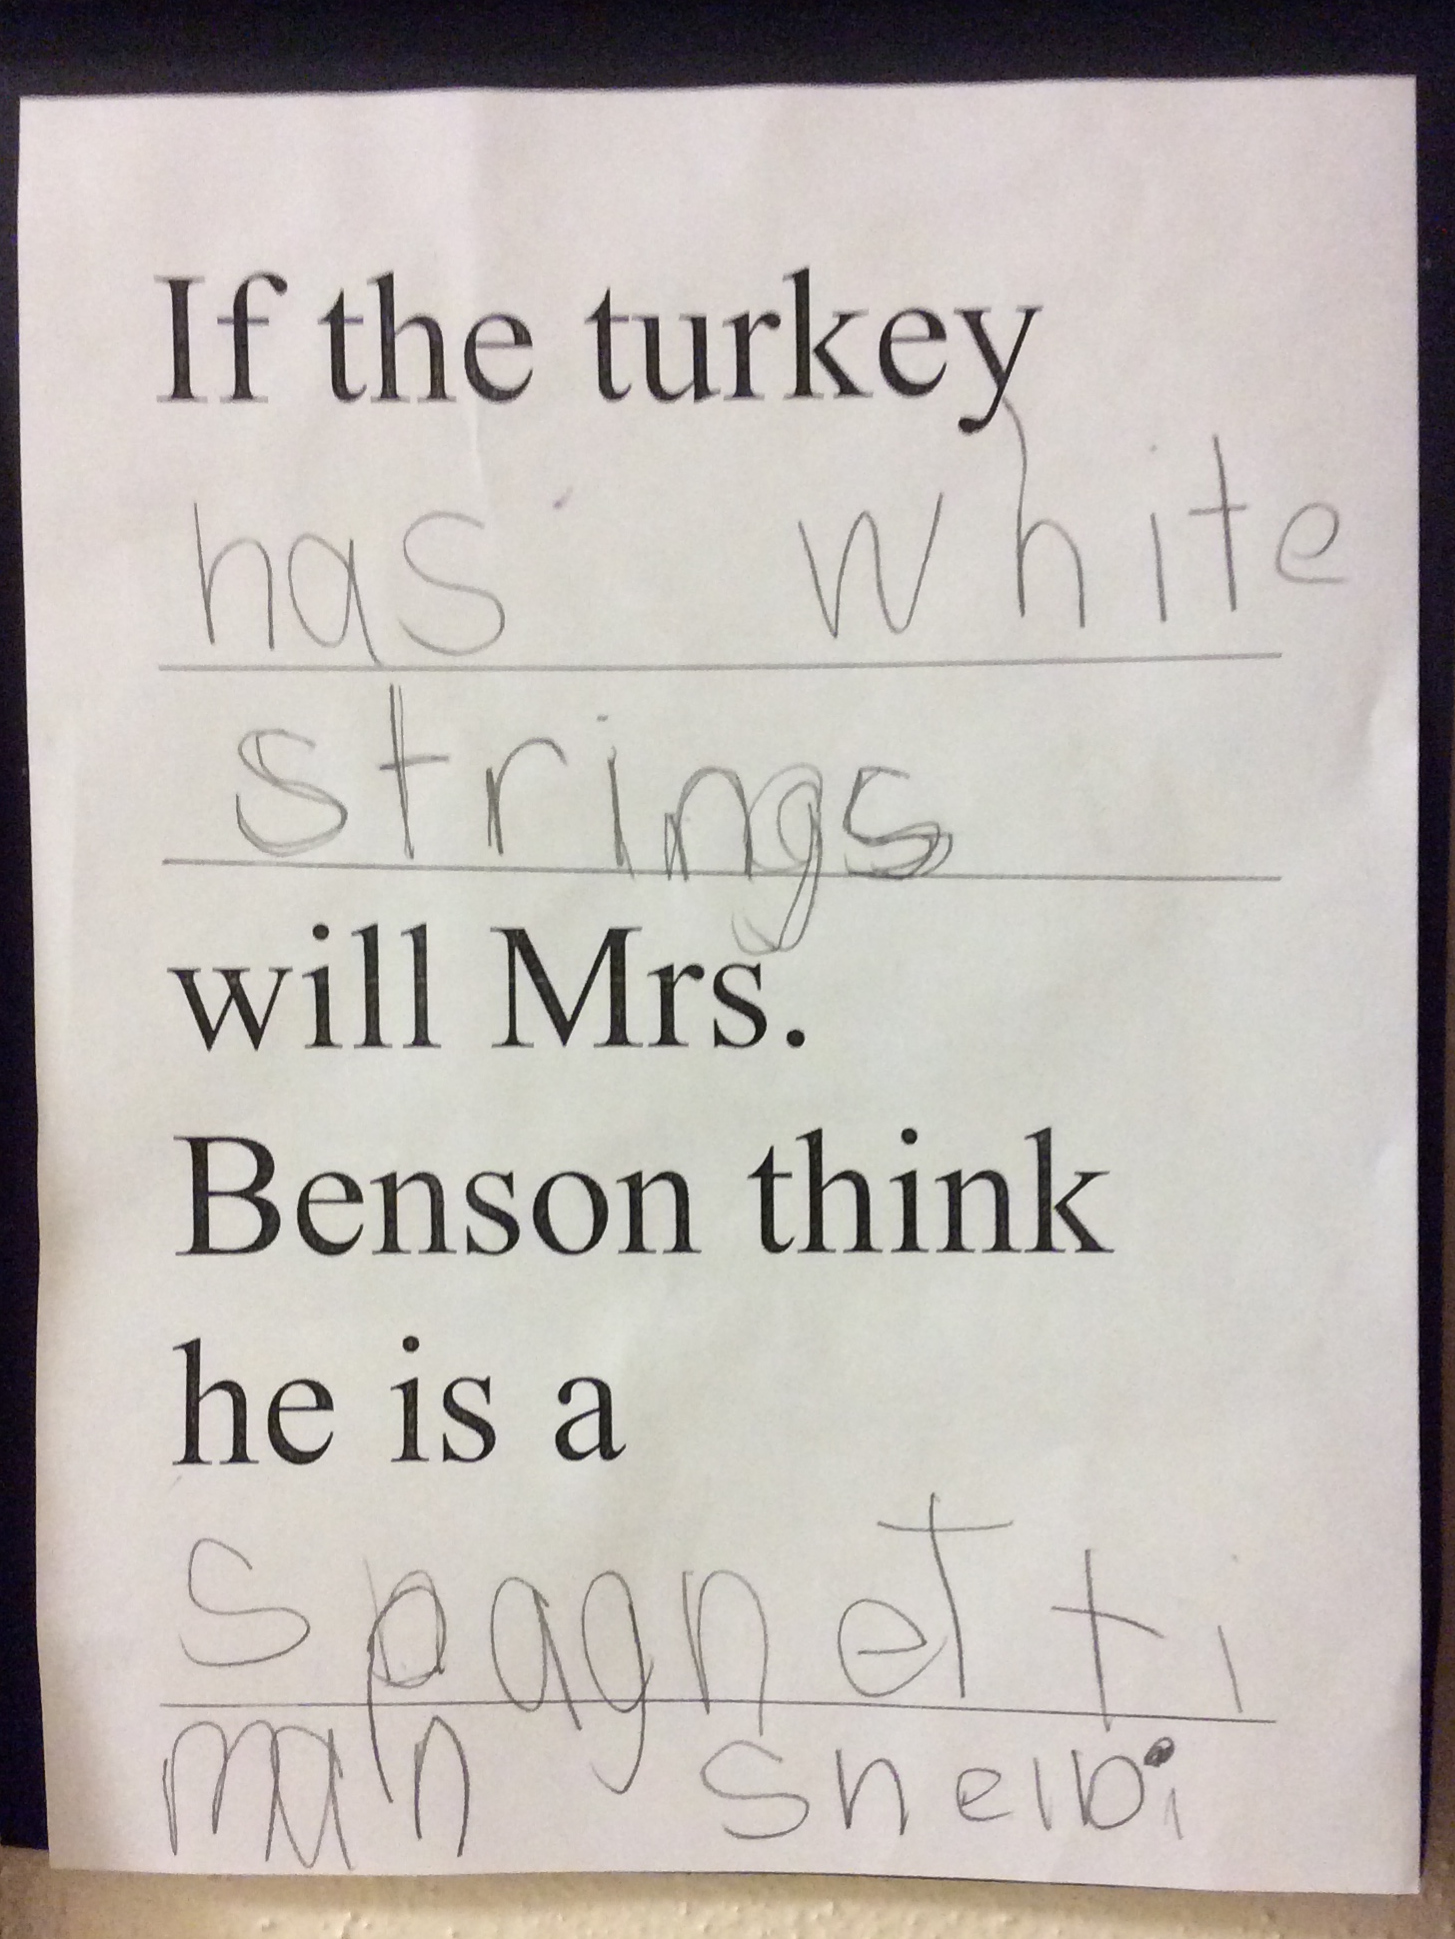 If the turkey
has white
strings
will Mrs.
Benson think
he is a
spaghetti
man Shelbi